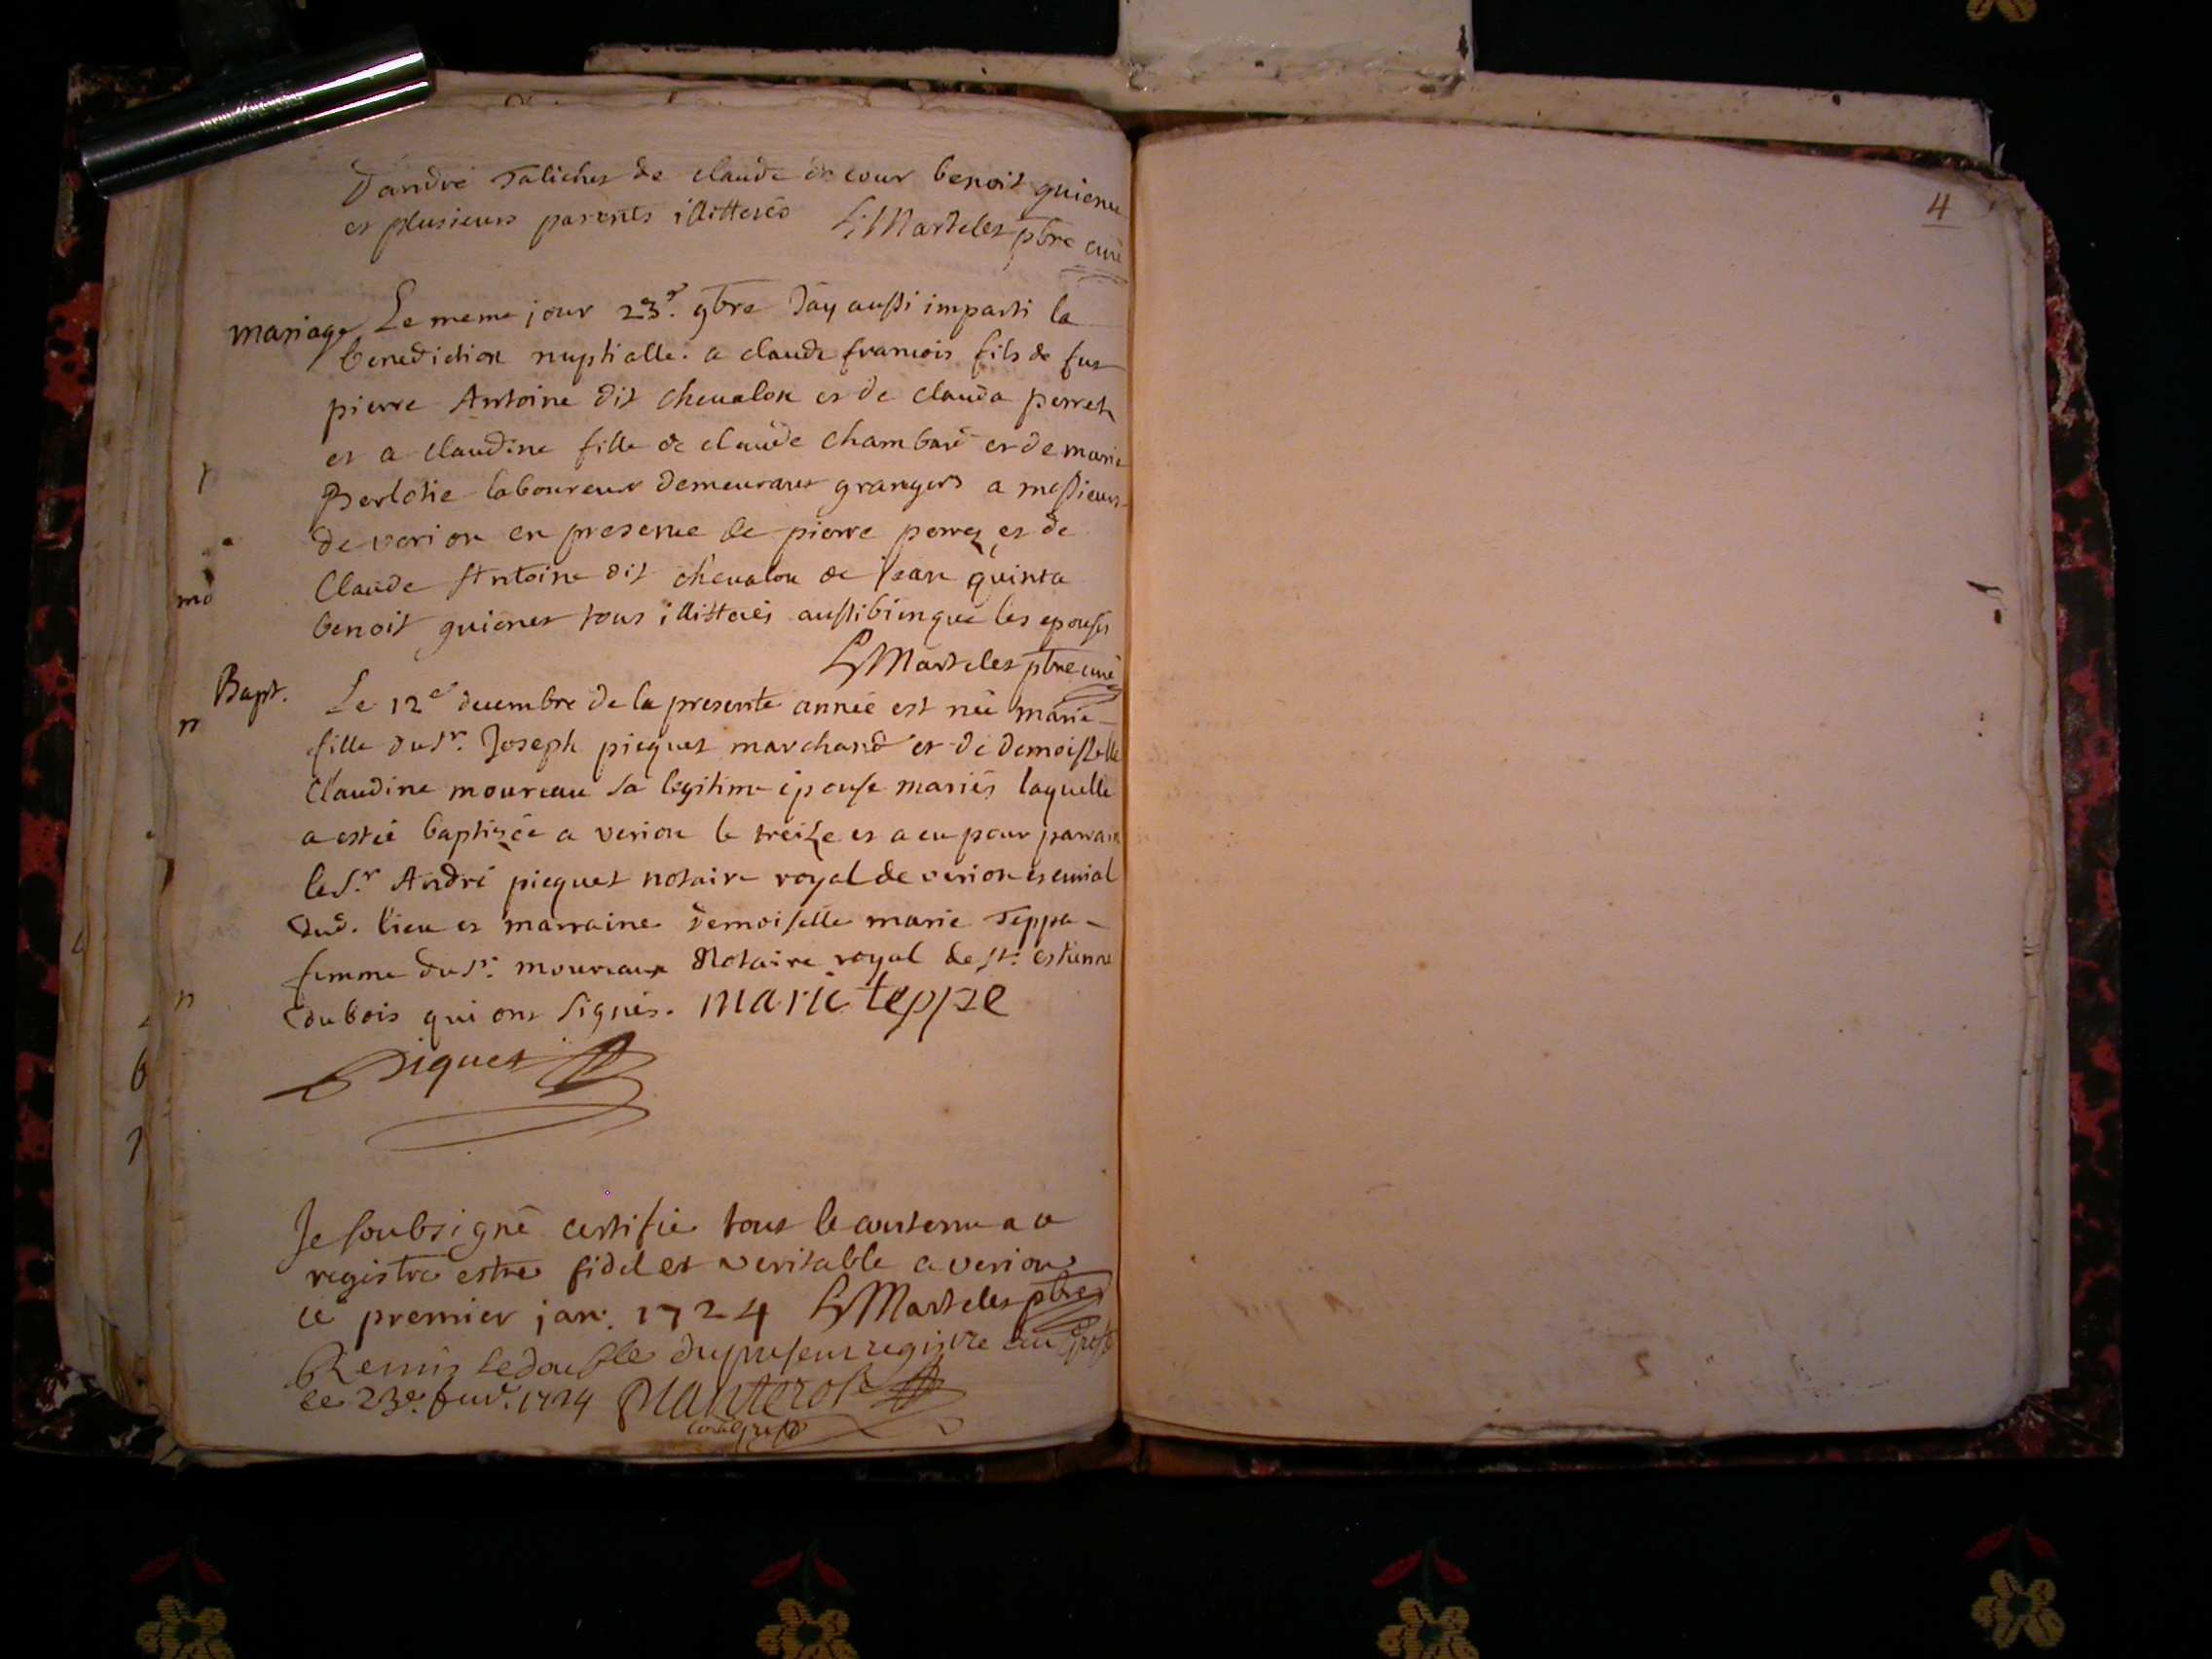 D'andré Taliches de claude decour benoit guienu
et plusieurs parents illitterés Martelet pbre curé
mariage Le meme jour 23e. 9bre J'ay aussi imparti la
benediction nuptialle. a claude francois fils de fut
pierre Antoine dit chevalon et de clauda perret
et a claudine fille de claude chambard et de marie
laboureur demeurant grangers a messieurs
de verion en presence de pierre perret et de
Claude Antoine dit chevalon de jean quinta
benoit guienet tous illitterés aussibienque les epousés
Martelet pbre curé
Bapt. Le 12e decembre de la presente année est née marie
fille du Sr. Joseph piequet marchand et de demoiselle
Claudine moureau sa legitime epouse mariés laquelle
a estée baptisée a verion le treize et a eu pour parrain
le Sr. André piequet notaire royal de verion et curial
dud. lieu et marraine demoiselle marie Teppa
femme du Sr. moureaux Notaire royal de St. estienne
dubois qui ont signés. marie teppe
Piquet
Je soubsigné certifie tout le contenu a ce
registre estre fidel et veritable a verion
ce premier jan. 1724 Martelet pbre
Remis le double du present registre au greffe
le 23e. fevr. 1724
4